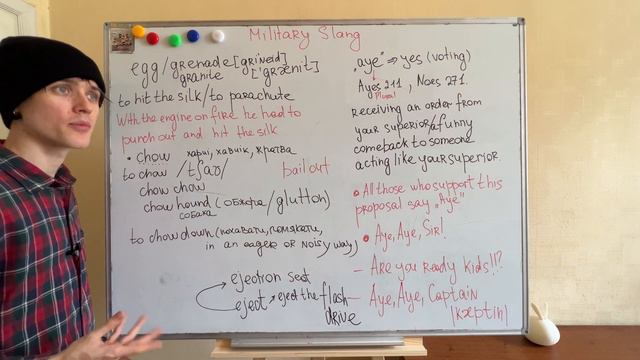 Military Slang
egg/grenade [grineid]
granite ['grænit]
to hit the silk/to parachute
With the engine on fire he had to
punch out and hit the silk
• chow харчі, хавчік, жратва
to chow /tʃaʊ/ bail out
chow chow
chow hound (обжора/glutton)
собака
to chow down (похавати,
in an eager or noisy way)
ejection seat
eject → eject the flash
drive
"aye" ⇒ yes (voting)
Ayes 211, Noes 271.
Plural
receiving an order from
your superior/a funny
comeback to someone
acting like your superior.
• All those who support this
proposal say "Aye"
• Aye, Aye, Sir!
– Are you ready kids!!?
– Aye, Aye, Captain
|kæptin|